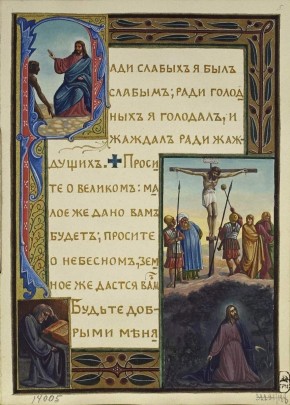 РАДИ СЛАБЫХЪ Я БЫЛЪ
СЛАБЫМЪ; РАДИ ГОЛОД
НЫХЪ Я ГОЛОДАЛЪ, И
ЖАЖДАЛЪ РАДИ ЖАЖ
ДУЩИХЪ. ✚ ПРОСИ
ТЕ О ВЕЛИКОМЪ: МА
ЛОЕ ЖЕ ДАНО ВАМЪ
БУДЕТЪ; ПРОСИТЕ
О НЕБЕСНОМЪ, ЗЕМ
НОЕ ЖЕ ДАСТСЯ ВАМЪ
БУДЬТЕ ДОБ
РЫМИ МѢНЯ
14005